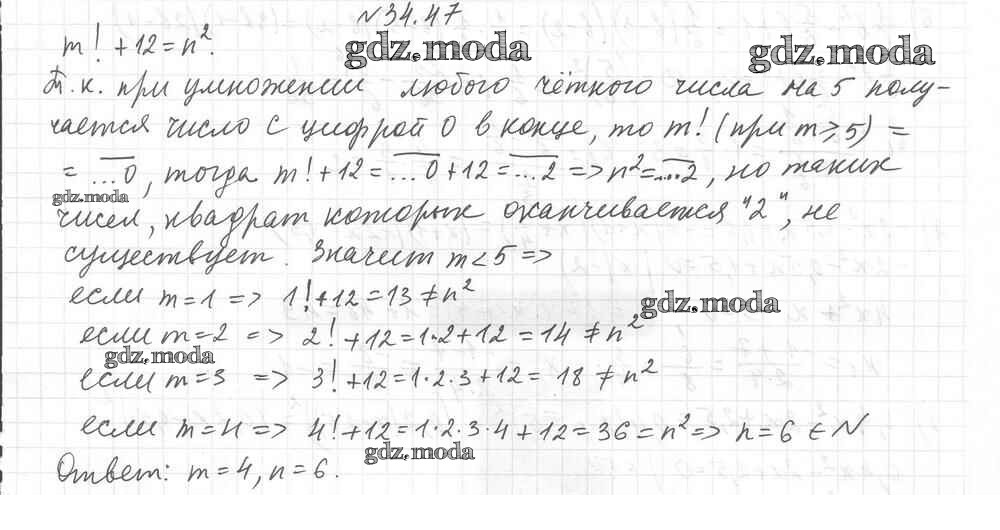 №34.47
m! + 12 = n².
gdz.moda
gdz.moda
Т.к. при умножении любого чётного числа на 5 полу-
чается число с цифрой 0 в конце, то m! (при m ⩾ 5) =
= \overline{...0}, тогда m! + 12 = \overline{...0} + 12 = \overline{...2} => n² = \overline{...2}, но таких
gdz.moda
чисел, квадрат которых оканчивается "2", не
существует. Значит m < 5 =>
если m = 1 => 1! + 12 = 13 ≠ n²
gdz.moda
если m = 2 => 2! + 12 = 1·2 + 12 = 14 ≠ n²
gdz.moda
если m = 3 => 3! + 12 = 1·2·3 + 12 = 18 ≠ n²
если m = 4 => 4! + 12 = 1·2·3·4 + 12 = 36 = n² => n = 6 ∈ N
gdz.moda
Ответ: m = 4, n = 6.